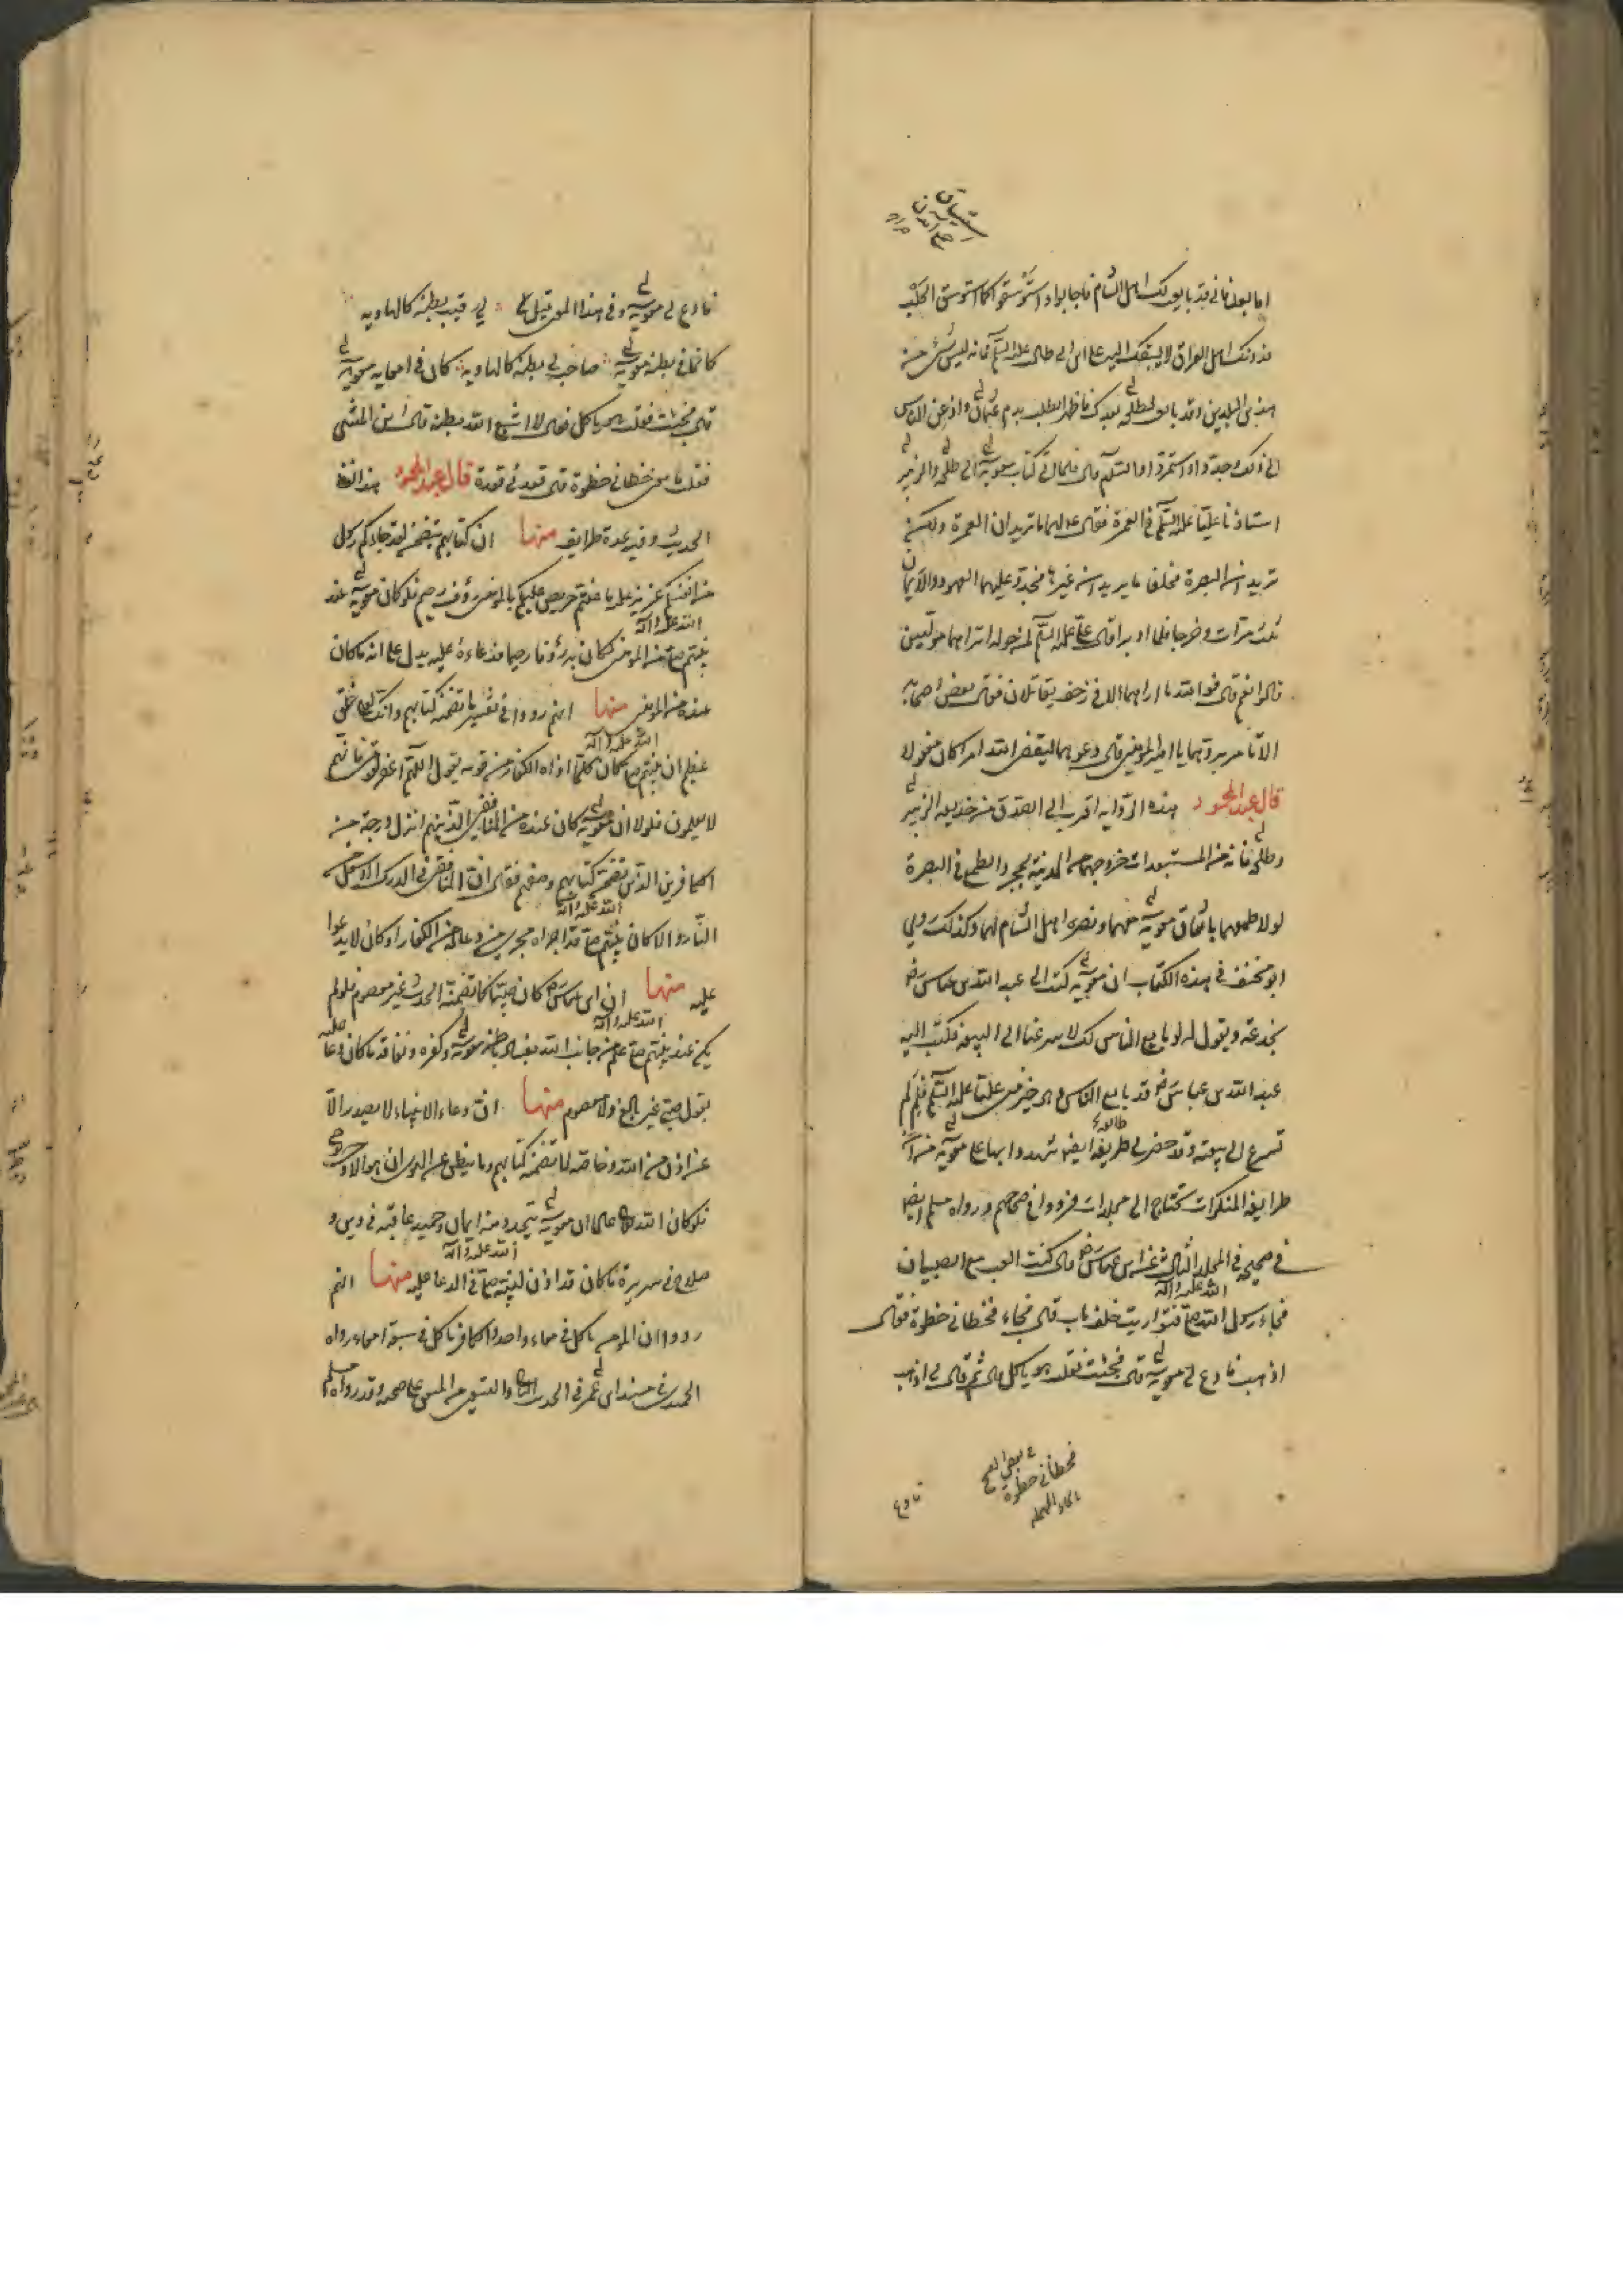 اما بعد فانى قد بايعت لك اهل الشام فاجابوا واستوسقوا كما استوسق الجلب
فدونك اهل العراق لا يسبقك اليها على بن ابى طالب عليه السلم فانه ليس شئ منه
هذين البلدين وقد بايعت لطلحة بعدك فاظهر الطلب بدم عثمان وادعى الناس
الى ذلك وجدوا واستمروا قال فلما اتى كتاب معوية الى طلحة والزبير
استاذنا عليّا عليه السلم فى العمرة فقال لهما ما تريدان العمرة ولكن
تريدان البصرة فحلفا ما يريدان غيرها فجدد عليهما العهود والايمان
ثلث مرات وخرجا فلما ادبرا قال على عليه السلم لمن حوله اترونهما موليين
قالوا نعم قال فوالله ما اراهما الا فى زحف يقاتلان فقال بعض اصحابه
الا تامر بردهما يا امير المؤمنين قال دعوهما ليقضى الله امرا كان مفعولا
قال عبد المحمود هذه الرواية اقرب الى الصدق من خديعة الزبير
وطلحة فانه من المستبعدات خروجهما من المدينة بمجرد الطمع فى البصرة
لولا طمعهما باتفاق معوية معهما ونصرة اهل الشام لهما وكذلك روى
ابو مخنف فى هذه الكتاب ان معوية كتب الى عبد الله بن عباس رض
يخدعه ويقول له لو بايع الناس لك لاسرعنا الى البيعة فكتب اليه
عبد الله بن عباس رض قد بايع الناس من هو خير منى عليّا عليه السلم فلم لم
تسرع الى بيعته وقد حضرنى طريفة ايضا شهدوا بها على معوية من
طرايف المنكرات تحتاج الى مجلدات فرووا فى صحاحهم ورواه مسلم ايضا
فى صحيحه فى المجلد الثالث عن ابن عباس رض قال كنت العب مع الصبيان
فجاء رسول الله صلى الله عليه واله فتواريت خلف باب قال فجاء فحطانى حطوة فقال
اذهب فادع لى معوية قال فجئت فقلت هو ياكل قال ثم قال لى اذهب
فحطأنى حطوة
بالحاء المهملة
فادع
فادع لى معوية وفى هذا المعنى قيل
كانما فى بطنه معوية صاحب لى بطنه كالهاوية كان فى امعايه معوية
قال فجئت فقلت هو ياكل فقال لا اشبع الله بطنه قال ابن المثنى
فقلت ما معنى خطانى خطوة قال قفدنى قفدة قال عبد المحمود هذا لفظ
الحديث وفيه عدة طرايف منها ان كتابهم يتضمن لقد جاءكم رسول
من انفسكم عزيز عليه ما عنتم حريص عليكم بالمؤمنين رؤف رحيم فلو كان معوية عند
نبيهم صلى الله عليه واله من المؤمنين لكان به رؤفا رحيما فدعاءه عليه يدل على انه ما كان
عنده من المؤمنين منها انهم رووا فى تفسير ما تضمنه كتابهم وانك لعلى خلق
عظيم ان نبيهم صلى الله عليه واله كان كلما اذاه الكفار من قومه يقول اللهم اغفر لقومى فانهم
لا يعلمون فلولا ان معوية كان عنده من المنافقين الذين هم انزل درجة من
الكافرين الذين تضمن كتابهم وصفهم فقال ان المنافقين فى الدرك الاسفل من
النار والا كان نبيهم صلى الله عليه واله قد اجراه مجرى من دعا له من الكفار او كان لا يدعوا
عليه منها ان ابن عباس رض كان صبيا كما تضمنه الحديث غير معصوم فلو لم
يكن عند نبيهم صلى الله عليه واله علم من جانب الله بفساد باطن معوية وكفره ونفاقه ما كان دعا عليه
بقول صبى غير بالغ ولا معصوم منها ان دعاء الانبياء لا يصدر الا
عن اذن من الله وخاصة لما تضمنه كتابهم وما ينطق عن الهوى ان هو الا وحى يوحى
فلو كان الله تعالى علم ان معوية يتجدد منه ايمان وحميد عاقبة فى دين و
صلاح فى سريرة ما كان قد اذن لنبيه صلى الله عليه واله فى الدعا عليه منها انهم
رووا ان المؤمن ياكل فى معاء واحد والكافر ياكل فى سبعة امعاء رواه
الحميدى فى مسند ابن عمر فى الحديث والتسعين من المتفق على صحته وقد رواه مسلم